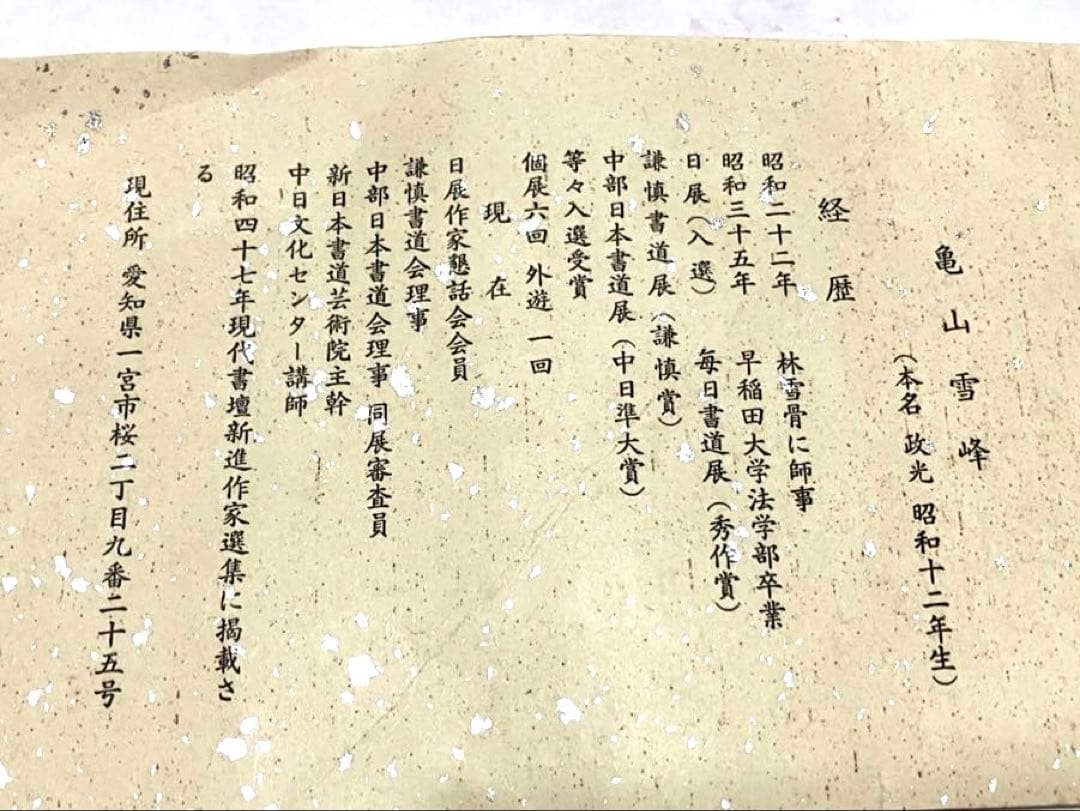 亀山雪峰
(本名 政光 昭和十二年生)
経歴
昭和二十二年 林雪骨に師事
昭和三十五年 早稲田大学法学部卒業
日展(入選) 毎日書道展(秀作賞)
謙慎書道展(謙慎賞)
中部日本書道展(中日準大賞)
等々入選受賞
個展六回 外遊 一回
現在
日展作家懇話会会員
謙慎書道会理事
中部日本書道会理事 同展審査員
新日本書道芸術院主幹
中日文化センター講師
昭和四十七年現代書壇新進作家選集に掲載さ
る
現住所 愛知県一宮市桜二丁目九番二十五号